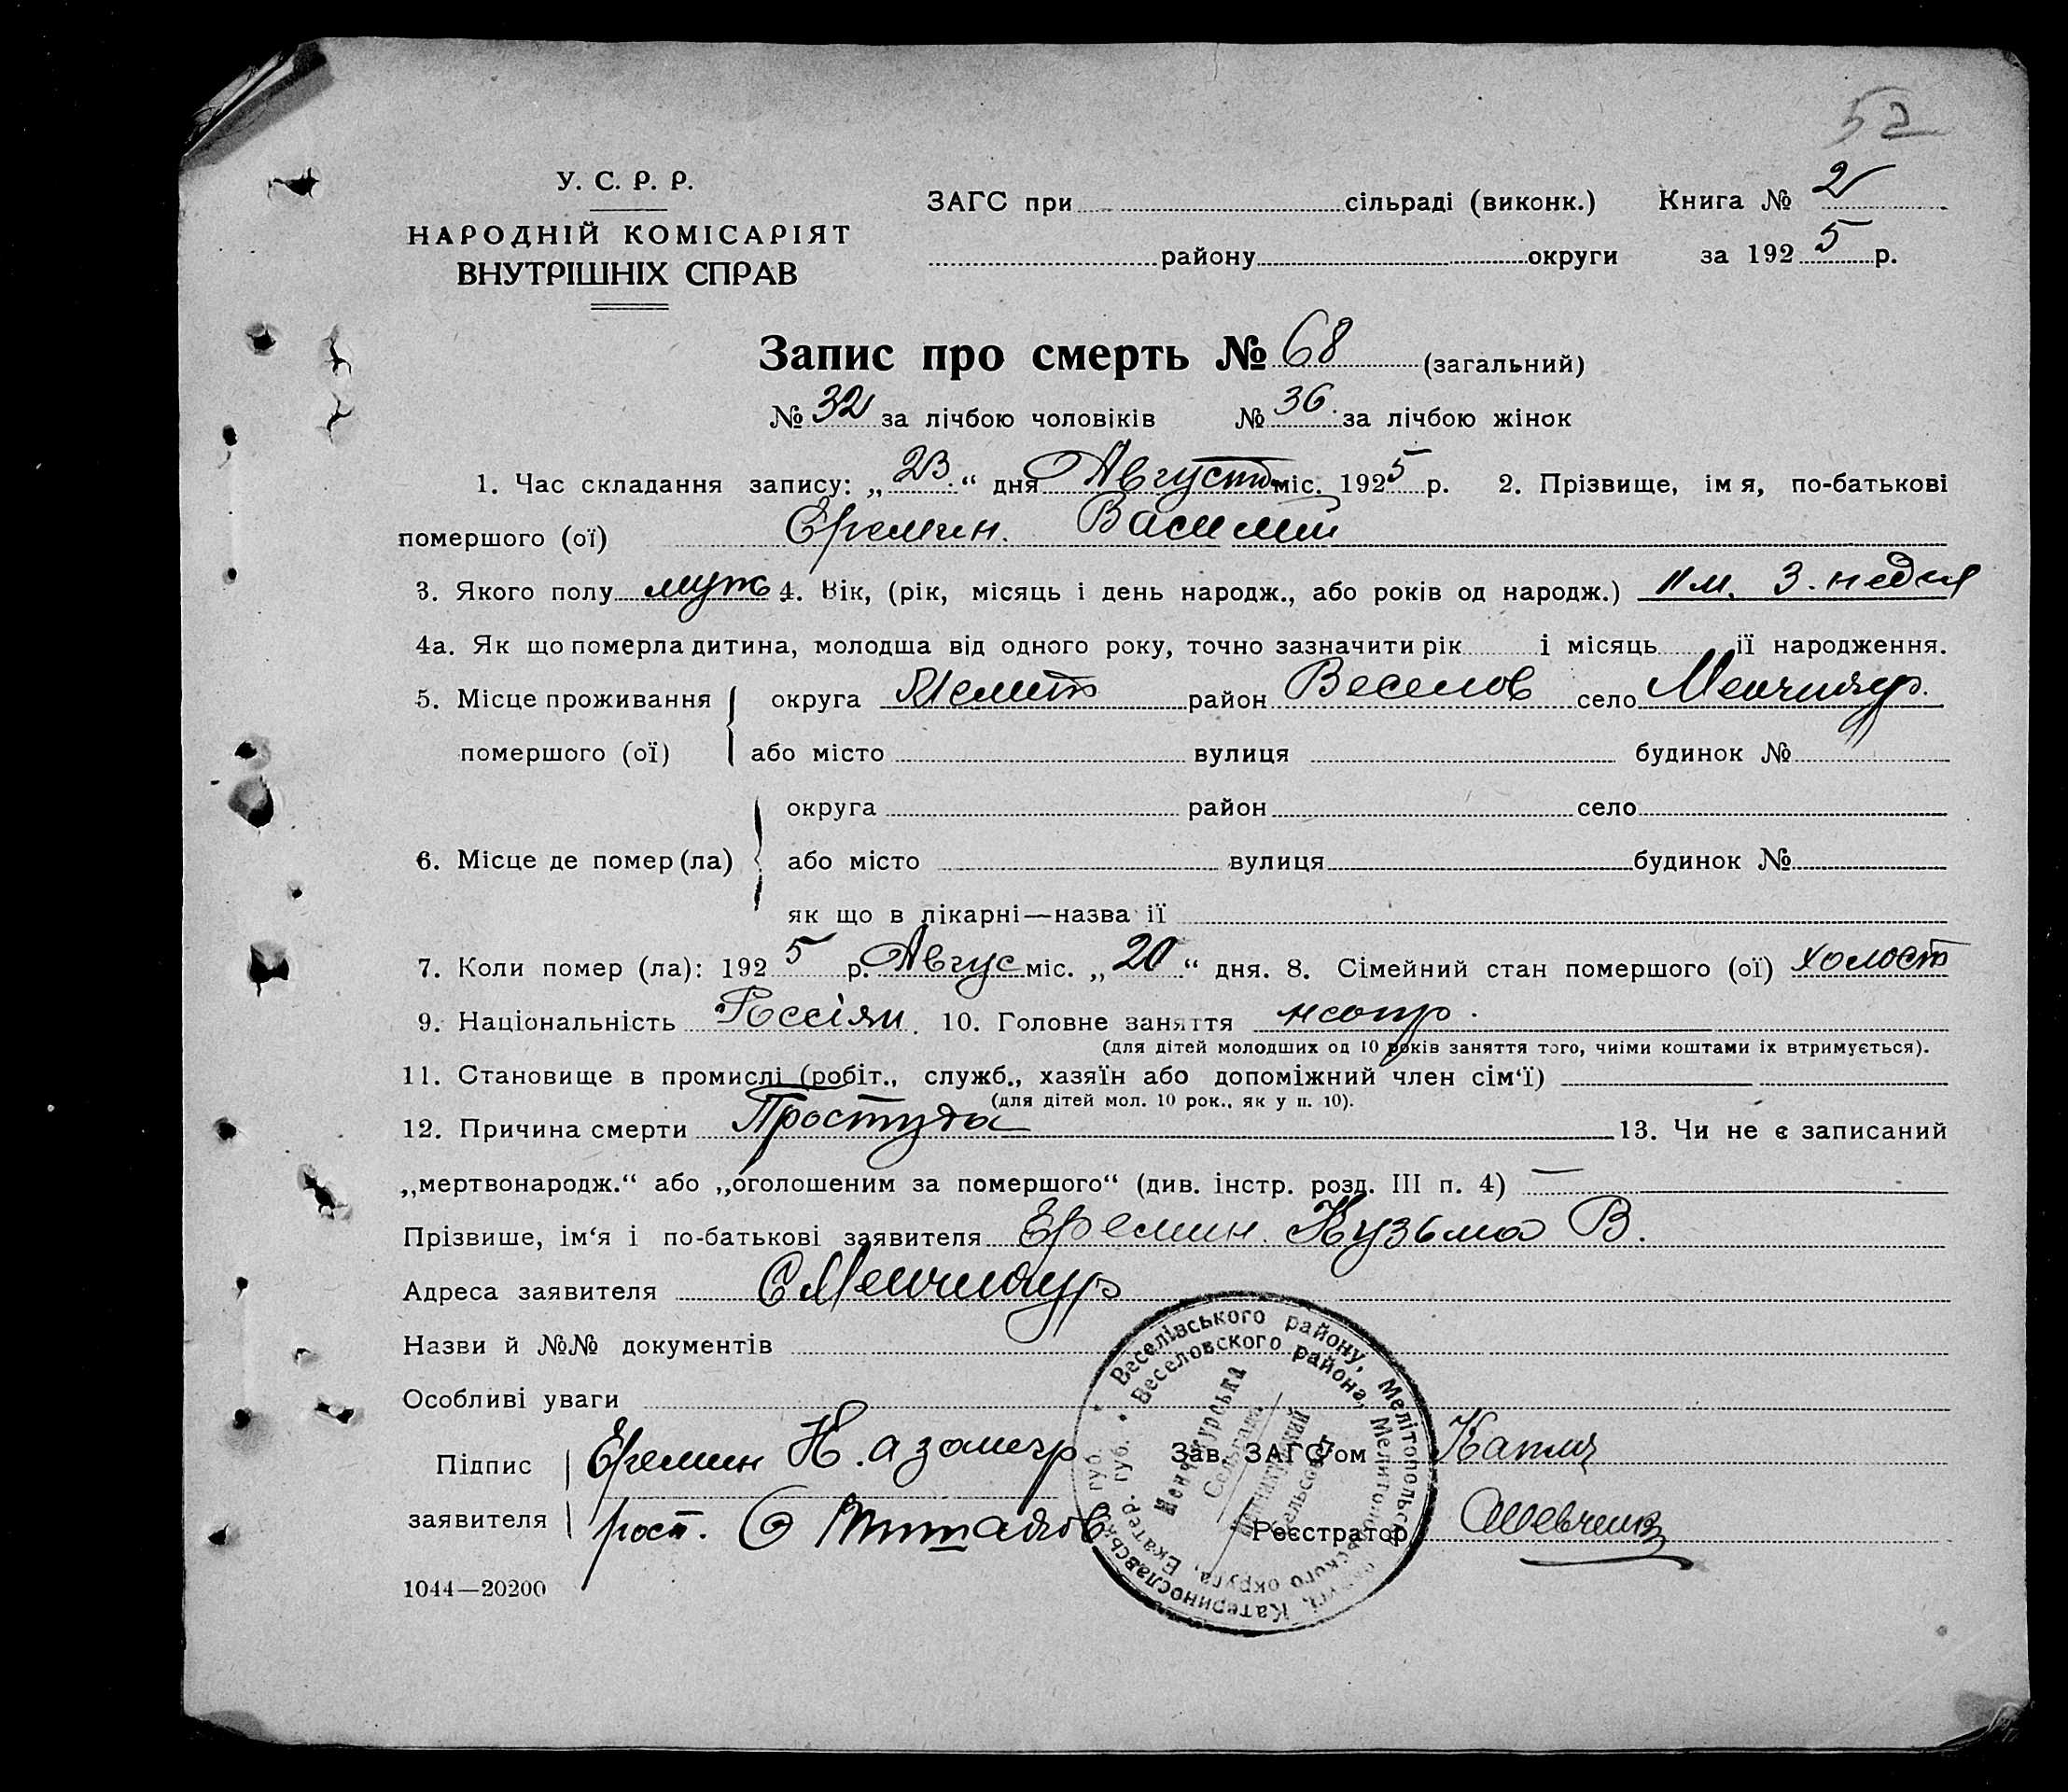 52
У. С. Р. Р.
НАРОДНІЙ КОМІСАРІЯТ
ВНУТРІШНІХ СПРАВ
ЗАГС при сільраді (виконк.) Книга № 2
району округи за 1925 р.
Запис про смерть № 68 (загальний)
№ 32 за лічбою чоловіків № 36. за лічбою жінок
1. Час складання запису: „23.“ дня Августа міс. 1925 р. 2. Прізвище, імя, по-батькові
помершого (ої) Еремин. Василий
3. Якого полу муж 4. Вік, (рік, місяць і день народж., або років од народж.) 11 м. 3. недел
4а. Як що померла дитина, молодша від одного року, точно зазначити рік і місяць її народження.
5. Місце проживання округа Мелит район Веселов село Менчикур.
помершого (ої) або місто вулиця будинок №
округа район село
6. Місце де помер (ла) або місто вулиця будинок №
як що в лікарні—назва її
7. Коли помер (ла): 1925 р. Авгус міс. „20“ дня. 8. Сімейний стан помершого (ої) холост
9. Національність Россіян. 10. Головне заняття
(для дітей молодших од 10 років заняття того, чиіми коштами іх втримується).
11. Становище в промислі (робіт., служб., хазяїн або допоміжний член сім‘ї)
(для дітей мол. 10 рок., як у п. 10).
12. Причина смерти Простуда 13. Чи не є записаний
„мертвонародж.“ або „оголошеним за помершого“ (див. інстр. розд. III п. 4) —
Прізвише, ім‘я і по-батькові заявителя Еремин. Кузьма В.
Адреса заявителя С Менчикур
Назви й №№ документів
Особливі уваги
Підпис Еремин Н. а за негр
заявителя рост.
Зав. ЗАГС‘ом Капля
Реєстратор Шевченко
Веселівського району, Мелітопольськ. округи, Катеринославськ. губ.
Веселовского района, Мелитопольского округа, Екатер. губ.
Менчикурська
Сельрада
Менчикурский
Сельсовет
1044—20200